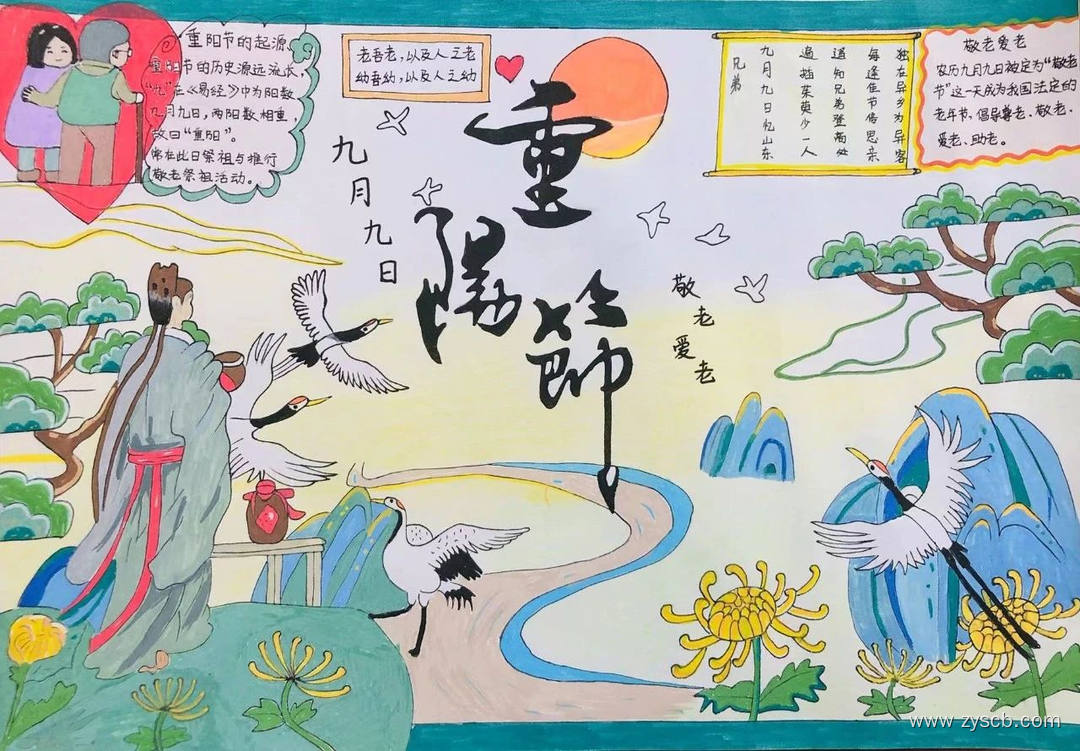 重阳节的起源
重阳节的历史源远流长,
“九”在《易经》中为阳数
九月九日,两阳数相重,
故曰“重阳”。
常在此日祭祖与推行
敬老祭祖活动。
老吾老,以及人之老
幼吾幼,以及人之幼
九月九日
重陽節
敬老爱老
独在异乡为异客
每逢佳节倍思亲
遥知兄弟登高处
遍插茱萸少一人
九月九日忆山东
兄弟
敬老爱老
农历九月九日被定为“敬老
节”这一天成为我国法定的
老年节,倡导尊老、敬老、
爱老、助老。
www.zyscb.com